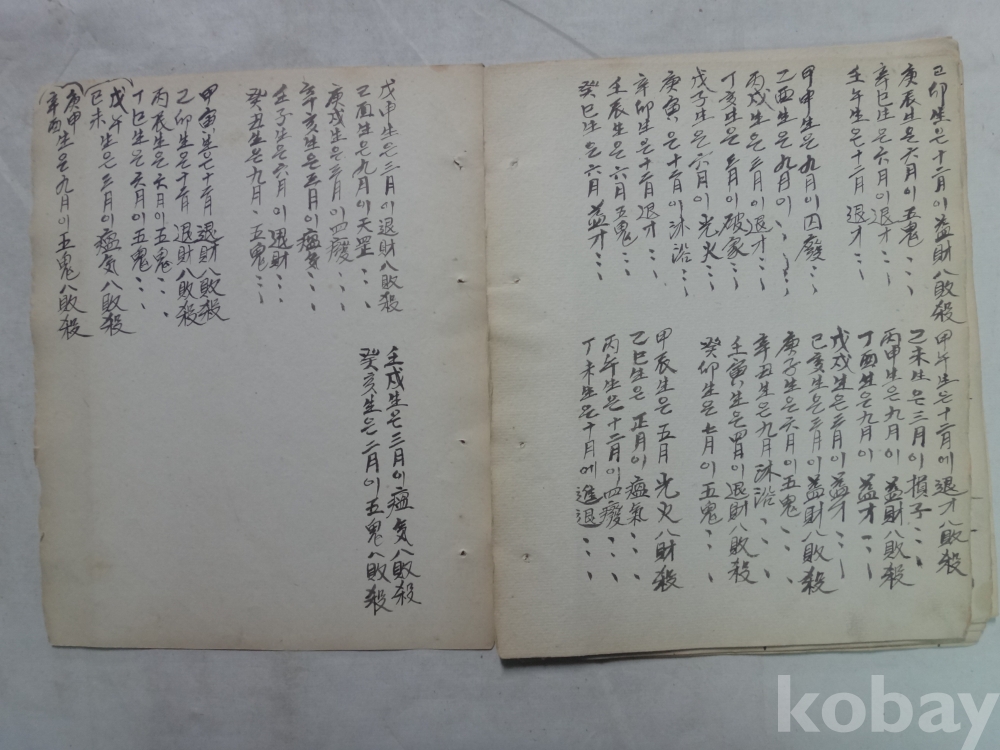 己卯生은 十二月이 益財八敗殺
庚辰生은 六月이 五鬼 、、、
辛巳生은 六月이 退才 、、、
壬午生은 十二月 退才 、、、
甲申生은 九月이 囚廢 、、、
乙酉生은 九月이 、、、、、
丙戌生은 三月이 退才 、、、
丁亥生은 三月이 破家 、、、
戊子生은 六月이 光火 、、、
庚寅은 十二月이 沐浴 、、、
辛卯生은 十二月 退才 、、、
壬辰生은 六月 五鬼 、、、
癸巳生은 六月 益才 、、、
甲午生은 十二月에 退才八敗殺
乙未生은 三月이 損子 、、、
丙申生은 九月이 益財八敗殺
丁酉生은 九月이 益才 、、、
戊戌生은 三月이 益才 、、、
己亥生은 三月이 益財八敗殺
庚子生은 六月이 五鬼 、、、
辛丑生은 九月 沐浴 、、、
壬寅生은 四月이 退財八敗殺
癸卯生은 七月이 五鬼 、、、
甲辰生은 五月 光火八財殺
乙巳生은 正月이 瘟氣 、、、
丙午生은 十二月이 四廢 、、、
丁未生은 十月에 進退 、、、
戊申生은 三月이 退財八敗殺
己酉生은 九月이 天罡 、、、
庚戌生은 三月이 四廢 、、、
辛亥生은 五月이 瘟氣 、、、
壬子生은 六月이 退財 、、、
癸丑生은 九月、五鬼 、、、
壬戌生은 三月이 瘟氣八敗殺
癸亥生은 二月이 五鬼八敗殺
甲寅生은 十二月 退財八敗殺
乙卯生은 十二月 退財八敗殺
丙辰生은 六月이 五鬼 、、、
丁巳生은 六月이 五鬼 、、、
戊午己未生은 三月이 瘟氣八敗殺
庚申辛酉生은 九月이 五鬼八敗殺
kobay